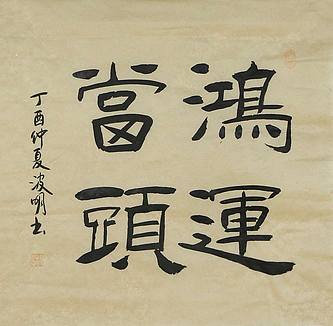 鴻運
當頭
丁酉仲夏波明书